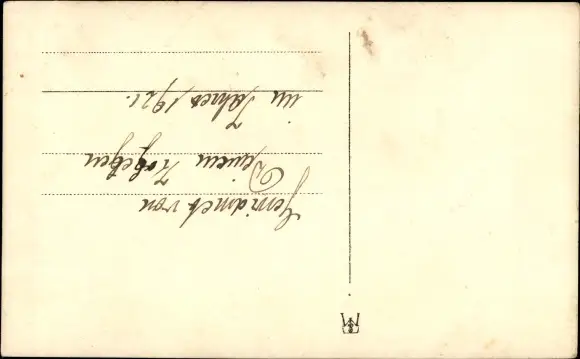 Gewidmet von
Deinem Kolegen
im Jahre 1921.